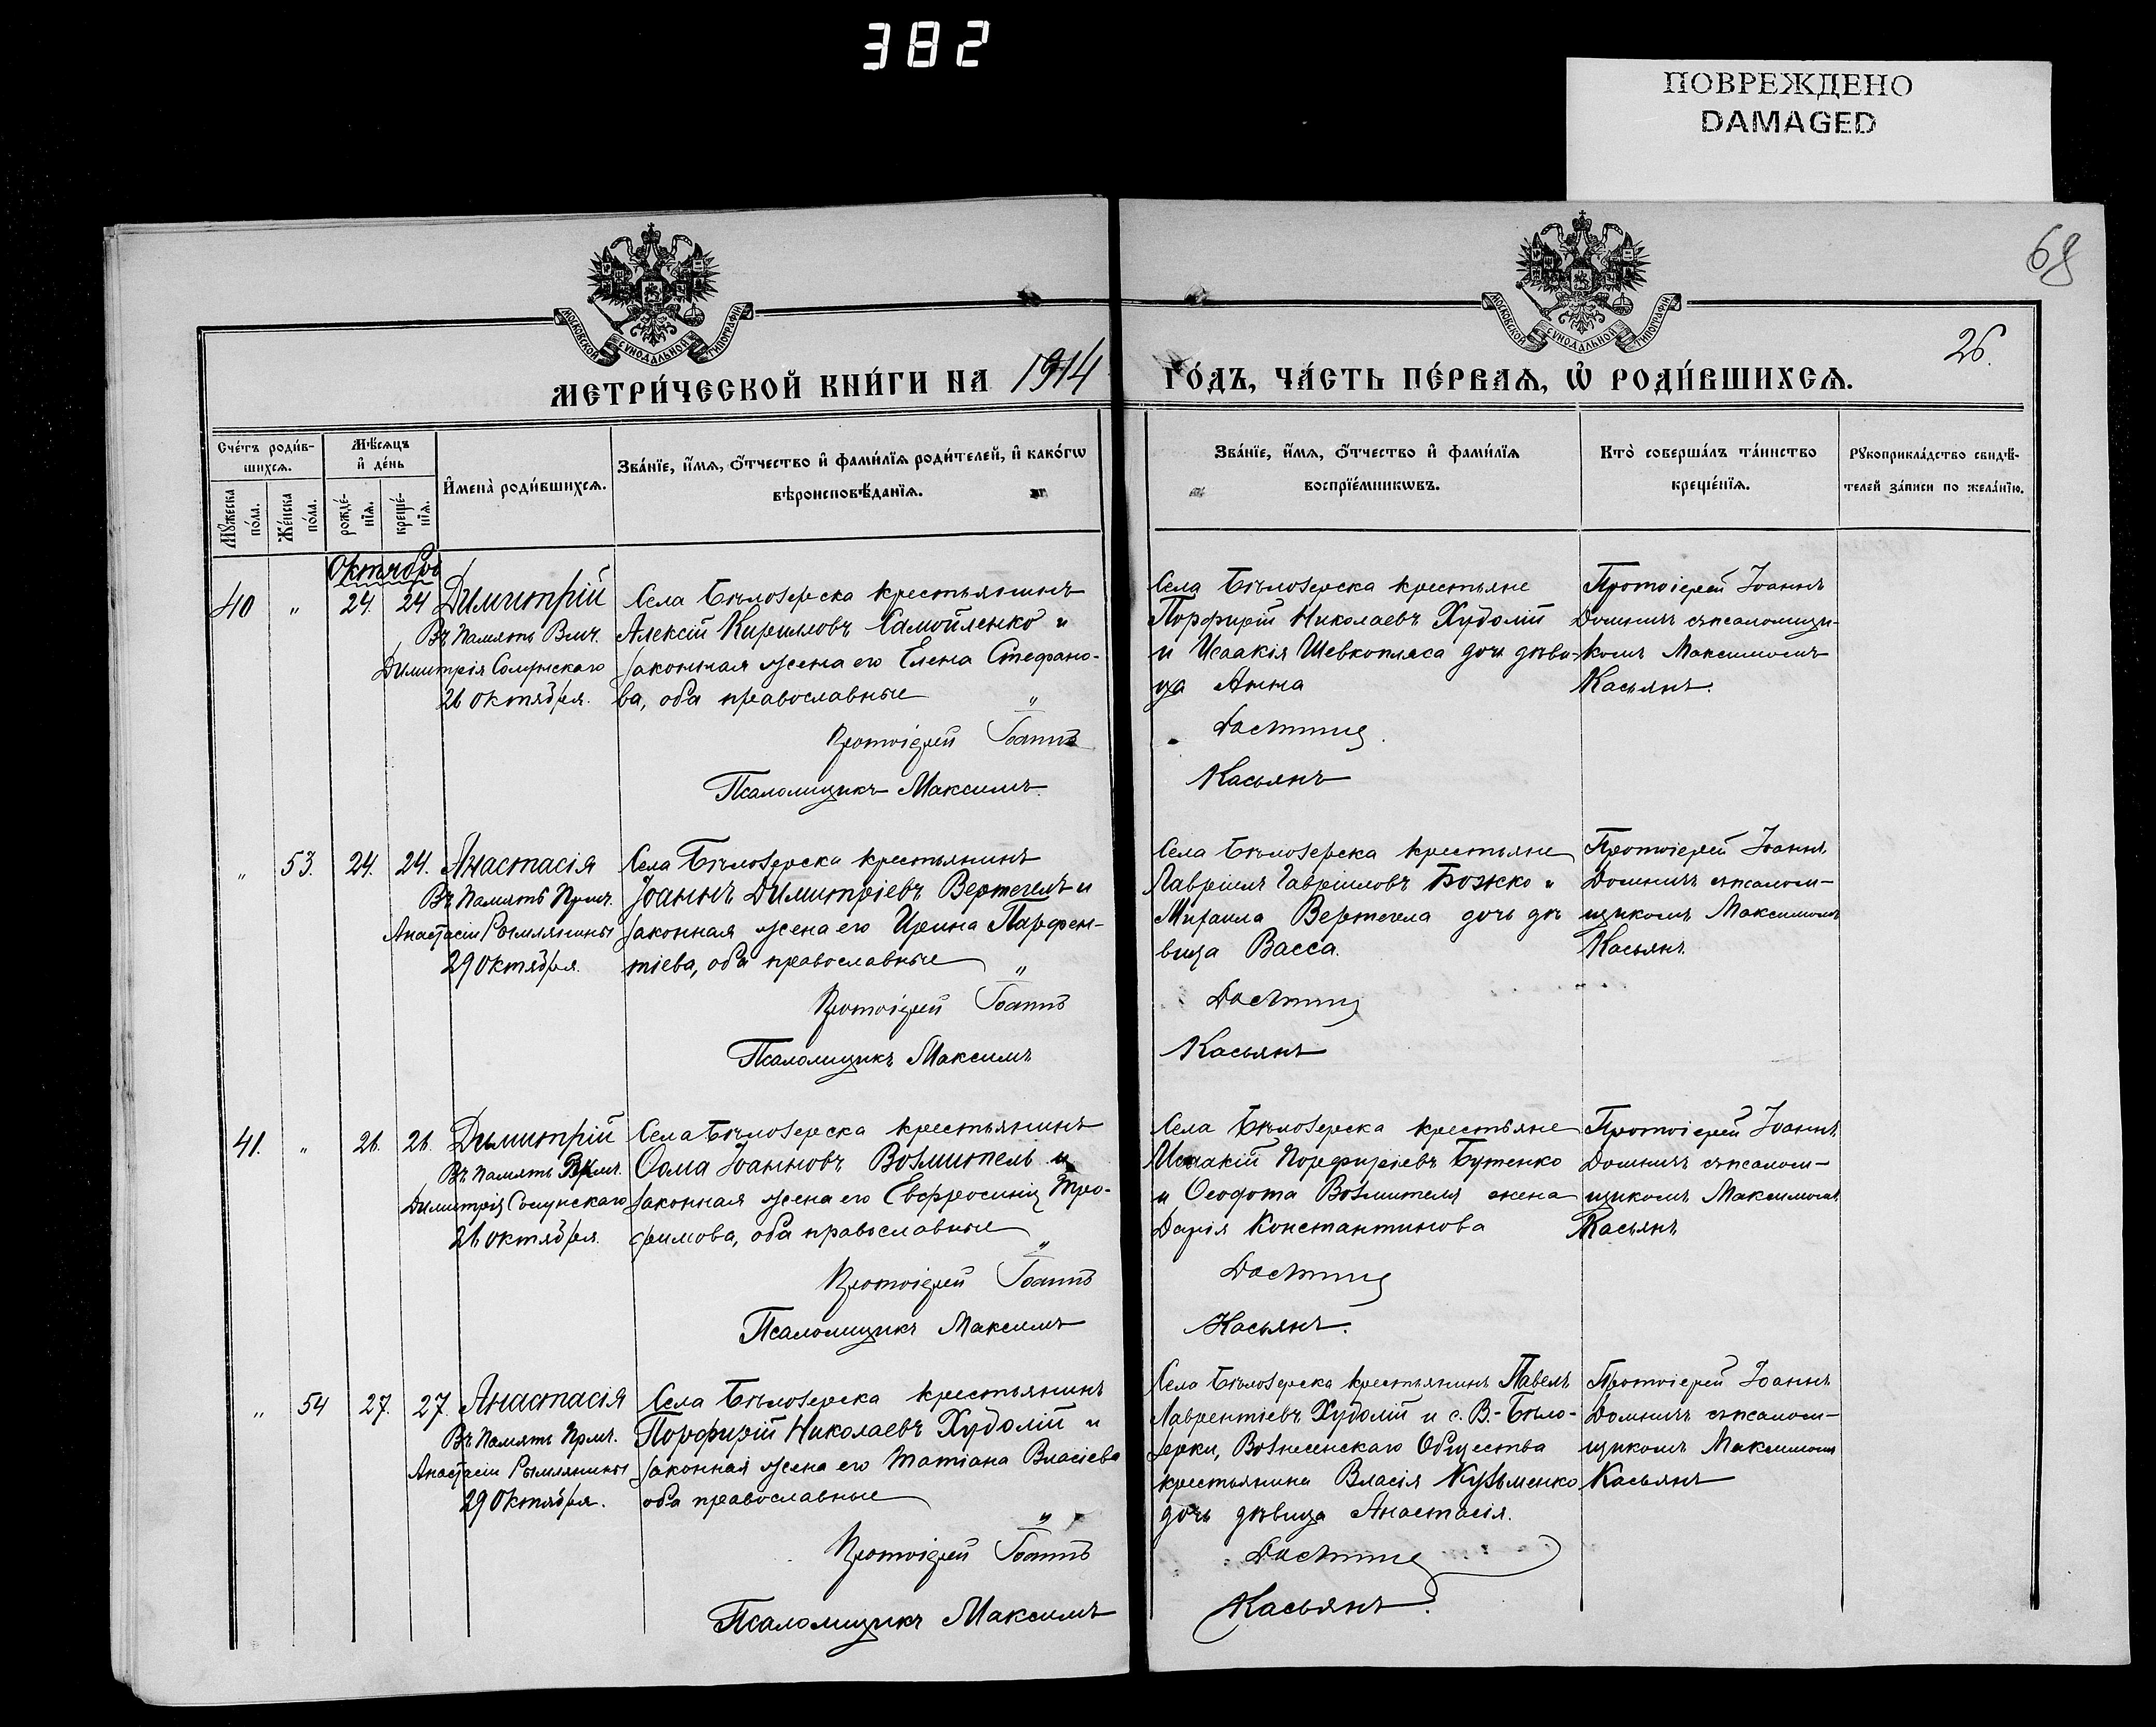 382
ПОВРЕЖДЕНО
DAMAGED
68
26.
МОСКОВСКОЙ СѴНОДАЛЬНОЙ ТИПОГРАФІИ
МОСКОВСКОЙ СѴНОДАЛЬНОЙ ТИПОГРАФІИ
МЕТРИ́ЧЕСКОЙ КНИ́ГИ НА 1914 ГО́ДЪ, ЧА́СТЬ ПЕ́РВАѦ, Ѡ҆ РОДИ́ВШИХСѦ.
Сче́тъ роди́в-
шихсѧ.
Мꙋжеска
по́ла.
Же́нска
по́ла.
Мѣ́сѧцъ
и҆ де́нь
рожде́-
нїѧ.
креще́-
нїѧ.
И҆мена̀ роди́вшихсѧ.
Зва́нїе, и҆́мѧ, ѻ҆́тчество и҆ фами́лїѧ роди́телей, и҆ како́гѡ
вѣроисповѣ́данїѧ.
Зва́нїе, и҆́мѧ, ѻ҆́тчество и҆ фами́лїѧ
воспрїе́мникѡвъ.
Кто̀ соверша́лъ та́инство
креще́нїѧ.
Рꙋкоприкла́дство свидѣ́-
телей за́писи по жела́нїю.
Октябрь
40 " 24. 24 Димитрій
Въ память Влмч.
Димитрія Солунскаго
26 октября.
Села Бѣлозерска крестьянинъ
Алексій Кирилловъ Самойленко и
законная жена его Елена Стефано-
ва, оба православные "
Протоіерей Іоаннъ
Псаломщикъ Максимъ
Села Бѣлозерска крестьяне
Порфирій Николаевъ Худолій
и Исаакія Шевкопляса дочь дѣви-
ца Анна
Касьянъ
Протоіерей Іоаннъ
съ псаломщи-
комъ Максимомъ
Касьянъ.
" 53. 24. 24. Анастасія
Въ память Прмч.
Анастасіи Римлянины
29 октября.
Села Бѣлозерска крестьянинъ
Іоаннъ Димитріевъ Вертегелъ и
законная жена его Ирина Парфен-
тіева, оба православные "
Протоіерей Іоаннъ
Псаломщикъ Максимъ
Села Бѣлозерска крестьяне
Гавріиловъ Божко и
Михаила Вертегела дочь дѣ
вица Васса.
Касьянъ
Протоіерей Іоаннъ
съ псалом-
щикомъ Максимомъ
Касьянъ.
41. " 26. 26. Димитрій
Въ память Влмч.
Димитрія Солунскаго
26 октября.
Села Бѣлозерска крестьянинъ
Ѳома Іоанновъ Возмитель и
законная жена его Евфросинія Тро-
фимова, оба православные "
Протоіерей Іоаннъ
Псаломщикъ Максимъ
Села Бѣлозерска крестьяне
Исаакій Порфиріевъ Бутенко
и Ѳеодота Возмителя жена
Дарія Константинова
Касьянъ.
Протоіерей Іоаннъ
съ псалом-
щикомъ Максимомъ
Касьянъ
" 54 27. 27. Анастасія
Въ память Прмч.
Анастасіи Римлянины
29 Октября.
Села Бѣлозерска крестьянинъ
Порфирій Николаевъ Худолій и
законная жена его Татіана Власіева
оба православные "
Протоіерей Іоаннъ
Псаломщикъ Максимъ
Села Бѣлозерска крестьянинъ Павелъ
Лаврентіевъ Худолій и с. В.-Бѣло-
зерки, Вознесенскаго Общества
крестьянина Власія Кузьменко
дочь дѣвица Анастасія.
Касьянъ.
Протоіерей Іоаннъ
съ псалом-
щикомъ Максимомъ
Касьянъ